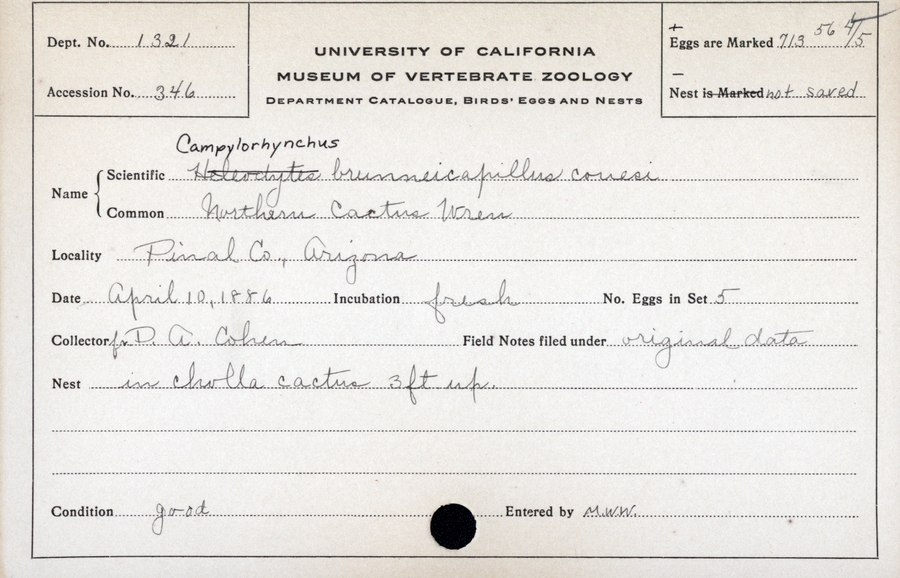 Dept. No. 1321
Accession No. 346
UNIVERSITY OF CALIFORNIA
MUSEUM OF VERTEBRATE ZOOLOGY
DEPARTMENT CATALOGUE, BIRDS' EGGS AND NESTS
+
Eggs are Marked 713 56 4/5
–
Nest is Marked not saved
Campylorhynchus
Name { Scientific Heleodytes brunneicapillus couesi
Common Northern Cactus Wren
Locality Pinal Co., Arizona
Date April 10, 1886 Incubation fresh No. Eggs in Set 5
Collector fr D. A. Cohen Field Notes filed under original data
Nest in cholla cactus 3 ft up.
Condition good Entered by M.W.W.